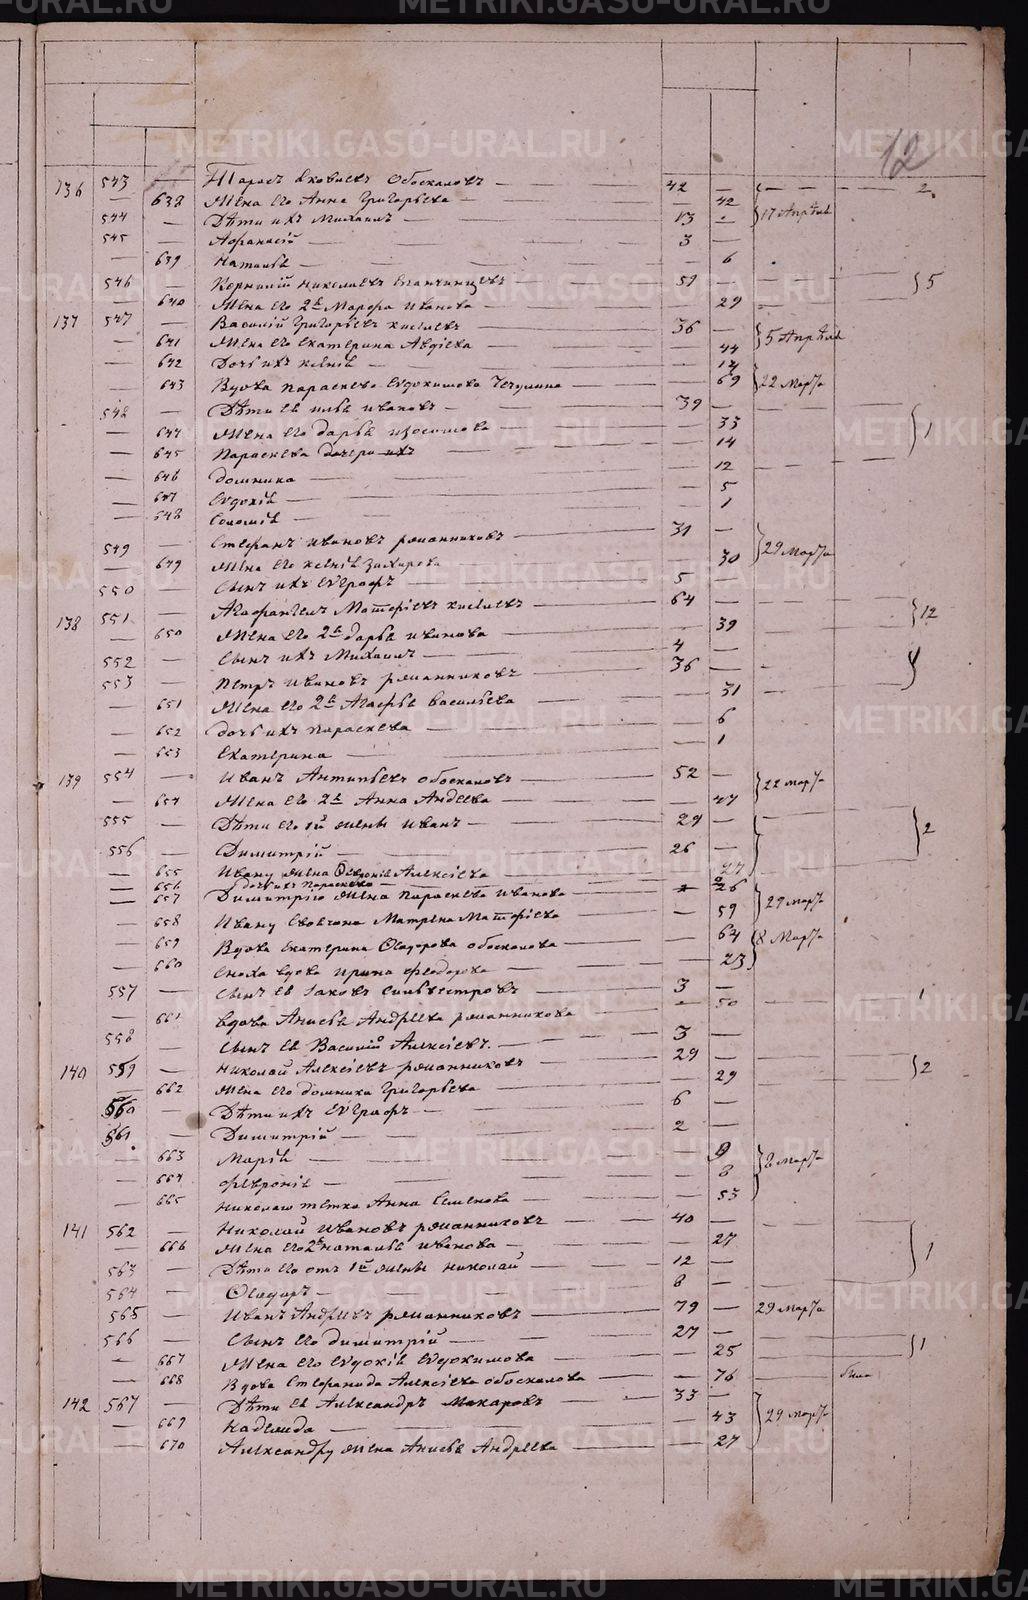 12
136 543 — Тарасъ Яковлевъ Обоскаловъ — 42 — 2
— 638 Жена его Анна Григорьева — 42 17 Апрѣля
544 — Дѣти ихъ Михаилъ — 13 —
545 — Афанасій — 3 —
— 639 Наталья — 6
546 — Корнилій Николаевъ — 51 — 5
— 640 Жена его 2я Марфа Иванова — 29
137 547 — Василій Григорьевъ Киселевъ — 36 — 5 Апрѣля
— 641 Жена его Екатерина Авдіева — 44
— 642 Дочь ихъ Ксенія — 14
— 643 Вдова Параскева Евдокимова — 69 22 Марта
548 — Дѣти ея Илья Ивановъ — 39 — 1
— 644 Жена его Дарья Изосимова — 33
— 645 Параскева дочери ихъ — 14
— 646 Домника — 12
— 647 Евдокія — 5
— 648 Соломія — 1
549 — Стефанъ Ивановъ Ржанниковъ — 31 — 29 Марта
— 649 Жена его Ксенія Захарова — 30
550 — Сынъ ихъ Евграфъ — 5 —
138 551 — Агафангелъ Матфіевъ Киселевъ — 64 — 12
— 650 Жена его 2я Дарья Иванова — 39
552 — Сынъ ихъ Михаилъ — 4 —
553 — Петръ Ивановъ Ржанниковъ — 36 —
— 651 Жена его 2я Агафья Васильева — 31
— 652 Дочь ихъ Параскева — 6
— 653 Екатерина — 1
139 554 — Иванъ Антипьевъ Обоскаловъ — 52 — 22 Марта
— 654 Жена его 2я Анна Андеева — 47
555 — Дѣти его 1й жены Иванъ — 29 — 2
556 — Димитрій — 26 —
— 655 Ивану жена Февронія Алексіева — 27
— 656 Дочь ихъ Параскева — 2
— 657 Димитрію жена Параскева Иванова — 26 29 Марта
— 658 Ивану Своячена Матрена Матфіева — 59
— 659 Вдова Екатерина Ѳеодорова Обоскалова — 64 8 Марта
— 660 Сноха вдова Ирина Феодорова — 23
557 — Сынъ ея Іаковъ Сильвестровъ — 3 —
— 661 Вдова Анисья Андреева Ржанникова — 50 1
558 — Сынъ ея Василій Алексіевъ — 3 —
140 559 — Николай Алексіевъ Ржанниковъ — 29 — 2
— 662 Жена его Домника Григорьева — 29
560 — Дѣти ихъ Евграфъ — 6 —
561 — Димитрій — 2 —
— 663 Марія — 9
— 664 Февронія — 8 8 Марта
— 665 Николаю тетка Анна Семенова — 53
141 562 — Николай Ивановъ Ржанниковъ — 40 —
— 666 Жена его 2я Наталья Иванова — 27 1
563 — Дѣти его отъ 1й жены Николай — 12 —
564 — Ѳеодоръ — 8 —
565 — Иванъ Андреевъ Ржанниковъ — 79 — 29 Марта
566 — Сынъ его Димитрій — 27 —
— 667 Жена его Евдокія Евдокимова — 25 1
— 668 Вдова Стефанида Алексіева Обоскалова — 76
142 567 — Дѣти ея Александръ Макаровъ — 33 —
— 669 Надежда — 43 29 Марта
— 670 Александру жена Анисья Андреева — 27
METRIKI.GASO-URAL.RU